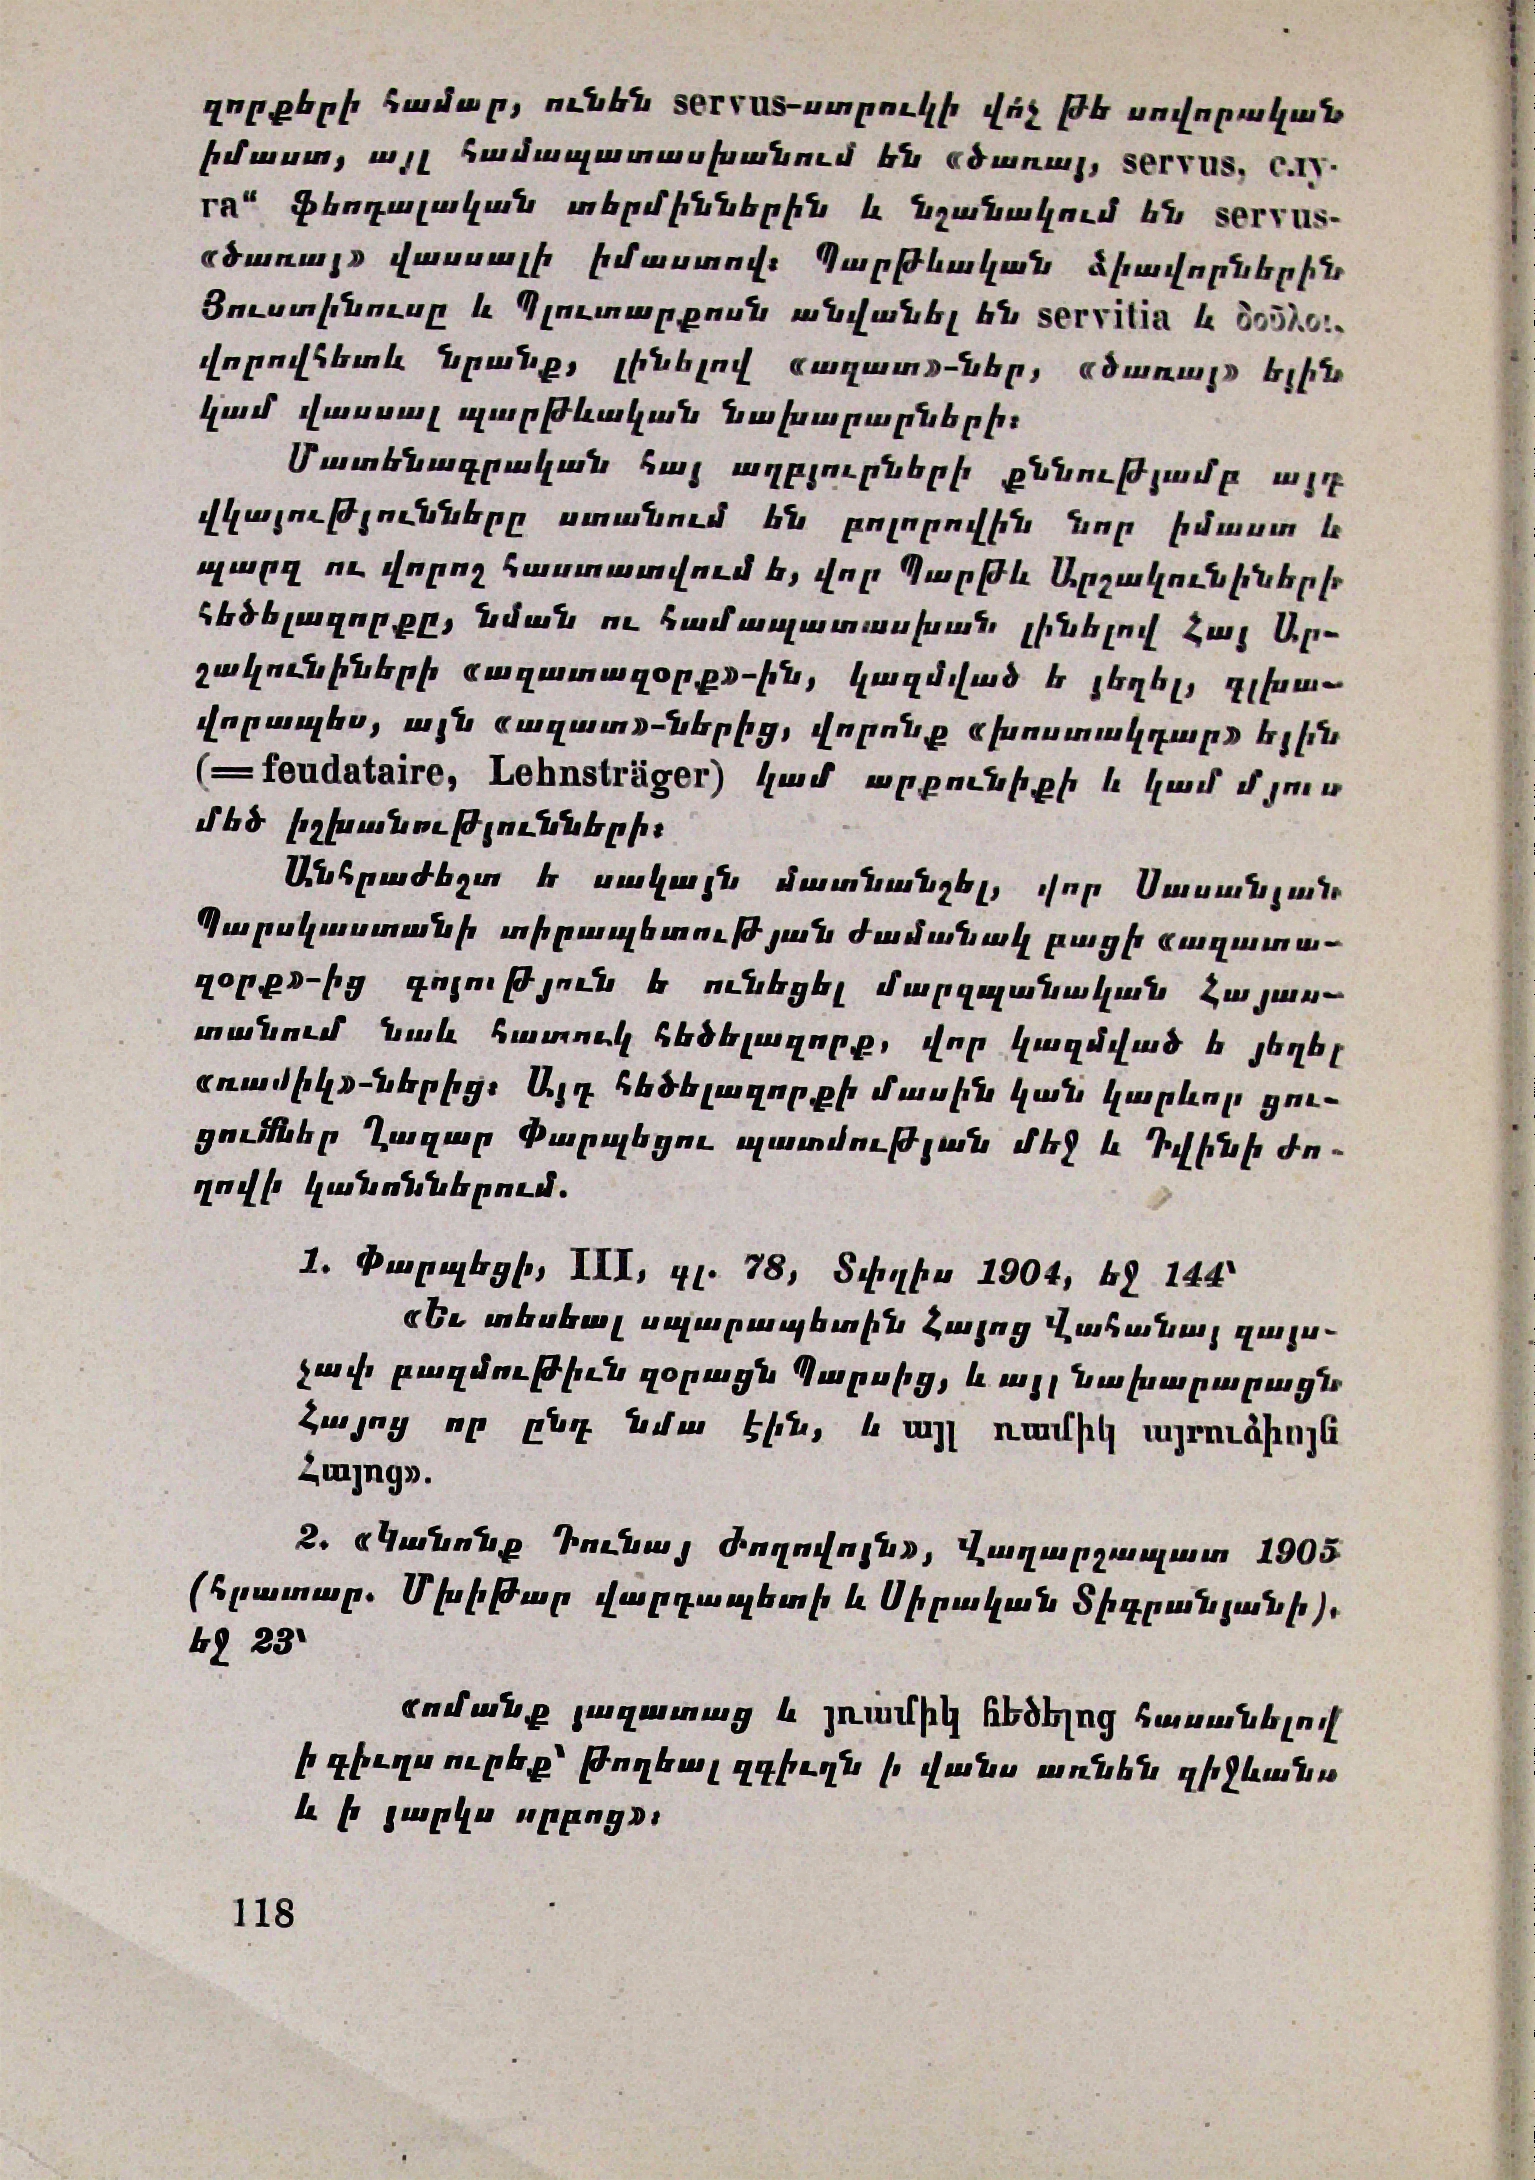 զորքերի համար, ունեն servus-ստրուկի վո՛չ թե սովորական
իմաստ, այլ համապատասխանում են «ծառայ, servus, слу-
га“ ֆեոդալական տերմիններին և նշանակում են servus-
«ծառայ» վասսալի իմաստով։ Պարթևական ձիավորներին
Յուստինուսը և Պլուտարքոսն անվանել են servitia և δοῦλοι,
վորովհետև նրանք, լինելով «ազատ»-ներ, «ծառայ» եյին
կամ վասսալ պարթևական նախարարների։
Մատենագրական հայ աղբյուրների քննությամբ այդ
վկայությունները ստանում են բոլորովին նոր իմաստ և
պարզ ու վորոշ հաստատվում է, վոր Պարթև Արշակունիների
հեծելազորքը, նման ու համապատասխան լինելով Հայ Ար-
շակունիների «ազատազօրք»-ին, կազմված ե յեղել, գլխա-
վորապես, այն «ազատ»-ներից, վորոնք «խոստակդար» եյին
(=feudataire, Lehnsträger) կամ արքունիքի և կամ մյուս
մեծ իշխանությունների։
Անհրաժեշտ ե սակայն մատնանշել, վոր Սասանյան
Պարսկաստանի տիրապետության ժամանակ բացի «ազատա-
զօրք»-ից գոյություն ե ունեցել մարզպանական Հայաս-
տանում նաև հատուկ հեծելազորք, վոր կազմված ե յեղել
«ռամիկ»-ներից։ Այդ հեծելազորքի մասին կան կարևոր ցու-
ցումներ Ղազար Փարպեցու պատմության մեջ և Դվինի ժո-
ղովի կանոններում.
1. Փարպեցի, III, գլ. 78, Տփղիս 1904, եջ 144՝
«Եւ տեսեալ սպարապետին Հայոց Վահանայ զայս-
չափ բազմութիւն զօրացն Պարսից, և այլ նախարարացն
Հայոց որ ընդ նմա էին, և այլ ռամիկ այրուձիոյն
Հայոց».
2. «Կանոնք Դունայ Ժողովոյն», Վաղարշապատ 1905
(հրատար. Մխիթար վարդապետի և Սիրական Տիգրանյանի),
եջ 23՝
«ոմանք յազատաց և յռամիկ հեծելոց հասանելով
ի գիւղս ուրեք՝ թողեալ զգիւղն ի վանս առնեն զիջևանս
և ի յարկս սրբոց»։
118